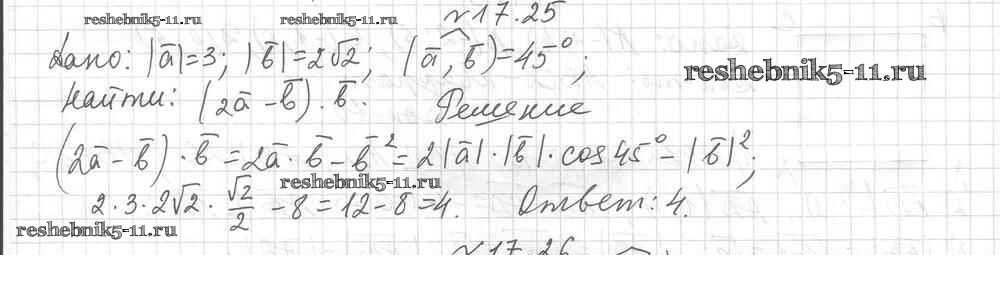 №17.25
reshebnik5-11.ru reshebnik5-11.ru
Дано: |a̅|=3; |b̅|=2√2; (a̅, b̅)=45°;
reshebnik5-11.ru
Найти: (2a̅ - b̅) · b̅. Решение
(2a̅ - b̅) · b̅ = 2a̅ · b̅ - b̅² = 2|a̅| · |b̅| · cos 45° - |b̅|²;
reshebnik5-11.ru
2 · 3 · 2√2 · √2/2 - 8 = 12 - 8 = 4. Ответ: 4.
reshebnik5-11.ru
№17.26